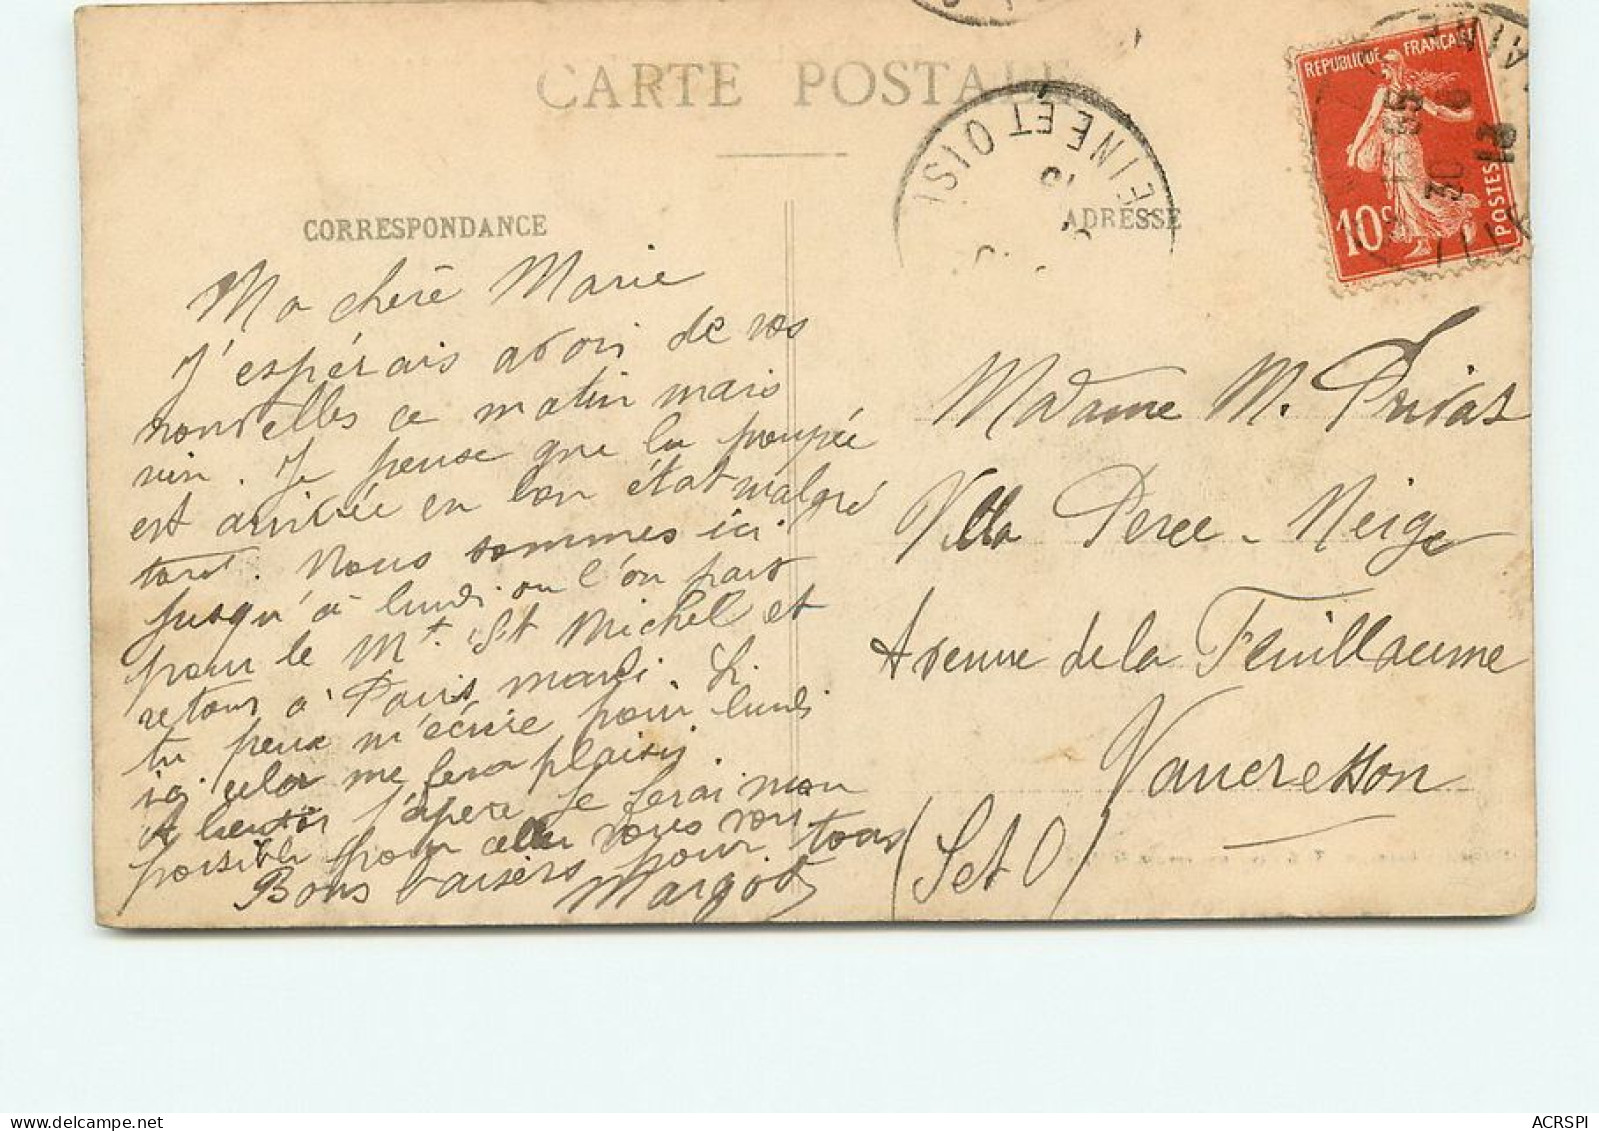 CARTE POSTALE
CORRESPONDANCE
Ma chère Marie
J'espérais avoir de vos
nouvelles ce matin mais
rien. Je pense que la poupée
est arrivée en bon état malgré
tout. Nous sommes ici
jusqu'à lundi ou l'on part
pour le Mt St Michel et
retour à Paris mardi. Si
tu peux m'écrire pour lundi
ici cela me fera plaisir.
A bientôt j'espère je ferai mon
possible pour aller vous voir
Bons baisers pour tous
Margot
ADRESSE
SEINE ET OISE
REPUBLIQUE FRANÇAISE
10c
POSTES
30
13
Madame M. Privat
Villa Perce-Neige
Avenue de la Feuillaume
Vaucresson
(S et O)
ACRSPI